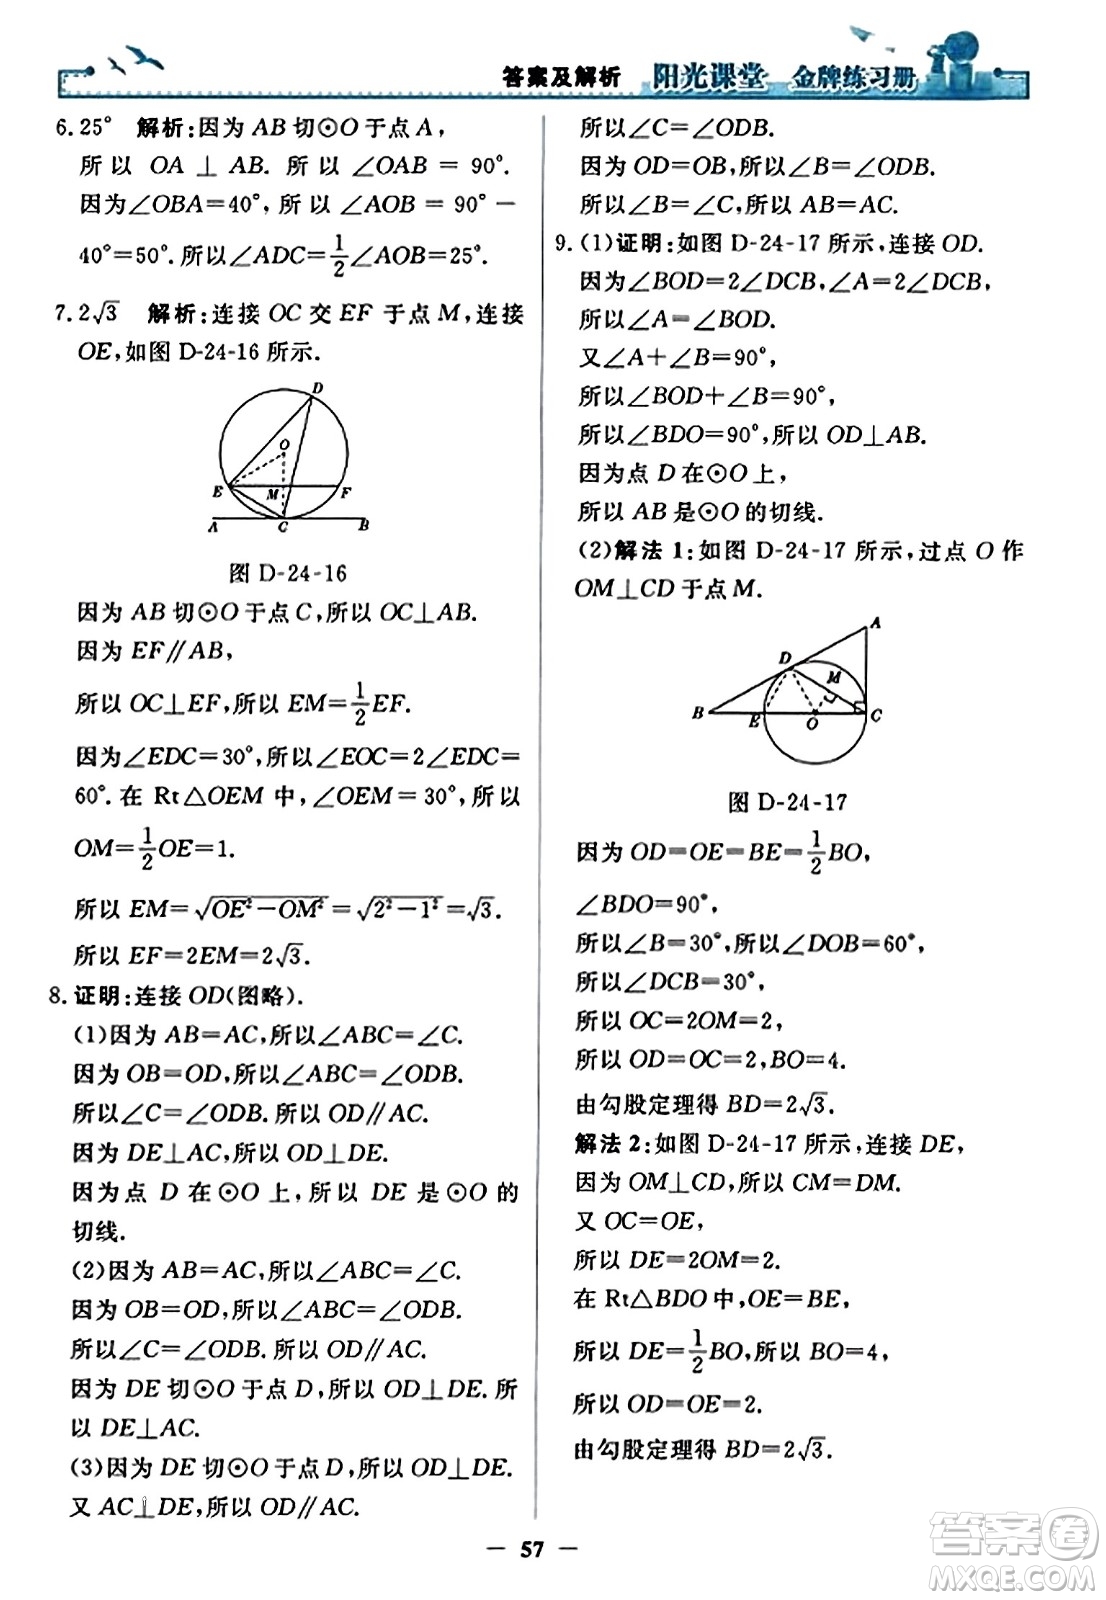 答案及解析 阳光课堂 金牌练习册
6. 25° 解析:因为 AB 切⊙O 于点 A,
所以 OA⊥AB. 所以 ∠OAB=90°.
因为∠OBA=40°, 所以 ∠AOB=90°-
40°=50°. 所以∠ADC=1/2∠AOB=25°.
7. 2√3 解析:连接 OC 交 EF 于点 M,连接
OE,如图 D-24-16 所示.
D
O
E M F
A C B
图 D-24-16
因为 AB 切⊙O 于点 C,所以 OC⊥AB.
因为 EF∥AB,
所以 OC⊥EF. 所以 EM=1/2EF.
因为∠EDC=30°,所以∠EOC=2∠EDC=
60°. 在 Rt△OEM 中,∠OEM=30°,所以
OM=1/2OE=1.
所以 EM=√(OE²-OM²)=√(2²-1²)=√3.
所以 EF=2EM=2√3.
8. 证明:连接 OD(图略).
(1)因为 AB=AC,所以∠ABC=∠C.
因为 OB=OD,所以∠ABC=∠ODB.
所以∠C=∠ODB. 所以 OD∥AC.
因为 DE⊥AC,所以 OD⊥DE.
因为点 D 在⊙O 上,所以 DE 是⊙O 的
切线.
(2)因为 AB=AC,所以∠ABC=∠C.
因为 OB=OD,所以∠ABC=∠ODB.
所以∠C=∠ODB. 所以 OD∥AC.
因为 DE 切⊙O 于点 D,所以 OD⊥DE. 所
以 DE⊥AC.
(3)因为 DE 切⊙O 于点 D,所以 OD⊥DE.
又 AC⊥DE,所以 OD∥AC.
所以∠C=∠ODB.
因为 OD=OB,所以∠B=∠ODB.
所以∠B=∠C,所以 AB=AC.
9. (1)证明:如图 D-24-17 所示,连接 OD.
因为∠BOD=2∠DCB,∠A=2∠DCB,
所以∠A=∠BOD.
又∠A+∠B=90°,
所以∠BOD+∠B=90°,
所以∠BDO=90°,所以 OD⊥AB.
因为点 D 在⊙O 上,
所以 AB 是⊙O 的切线.
(2)解法 1:如图 D-24-17 所示,过点 O 作
OM⊥CD 于点 M.
A
D
M
B E O C
图 D-24-17
因为 OD=OE=BE=1/2BO,
∠BDO=90°,
所以∠B=30°,所以∠DOB=60°,
所以∠DCB=30°,
所以 OC=2OM=2,
所以 OD=OC=2,BO=4.
由勾股定理得 BD=2√3.
解法 2:如图 D-24-17 所示,连接 DE,
因为 OM⊥CD,所以 CM=DM.
又 OC=OE,
所以 DE=2OM=2.
在 Rt△BDO 中,OE=BE,
所以 DE=1/2BO,所以 BO=4,
所以 OD=OE=2.
由勾股定理得 BD=2√3.
— 57 —
答案圈
MXQE.COM